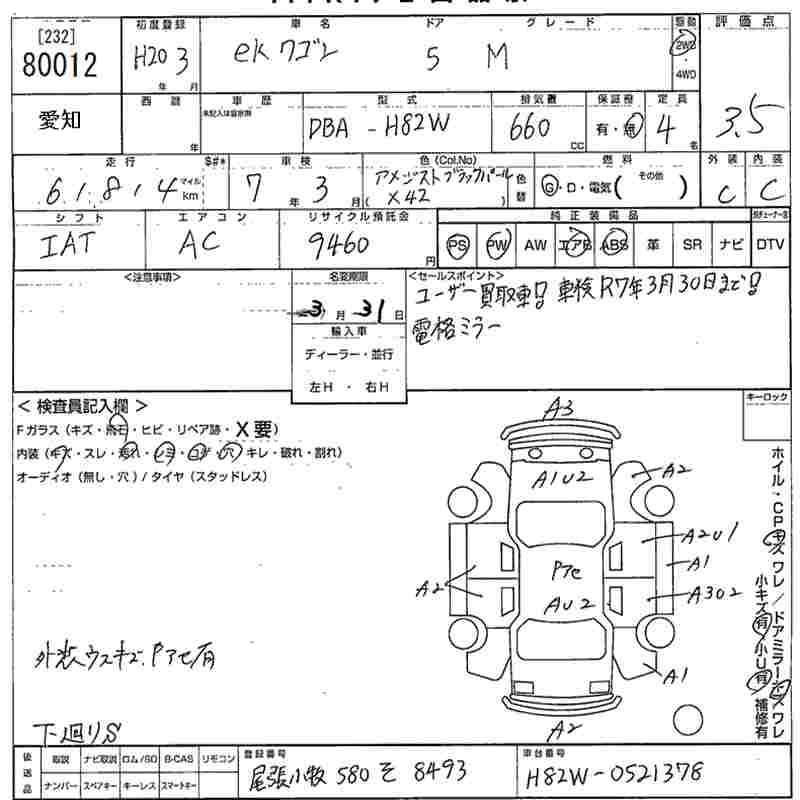 [232]
80012
初度登録
H20 3
年 月
車名
ekワゴン
ドア
5
グレード
M
駆動
2WD
・
4WD
評価点
3.5
愛知
西暦
年
車歴
未記入は自家用
型式
DBA - H82W
排気量
660
CC
保証書
有・無
定員
4
名
走行
6 1, 8 1 4
マイル
km
$#*
車検
7 年 3 月
色(Col.No)
アメジストブラックパール
( X42 )
色替
燃料
G・D・電気( その他 )
外装
C
内装
C
シフト
IAT
エアコン
AC
リサイクル預託金
9460
円
純正装備品
PS PW AW エアB ABS 革 SR ナビ DTV
<注意事項>
名変期限
3月31日
輸入車
ディーラー・並行
左H ・ 右H
<セールスポイント>
ユーザー買取車! 車検R7年3月30日まで!
電格ミラー
< 検査員記入欄 >
Fガラス(キズ・飛石・ヒビ・リペア跡・X要)
内装(キズ・スレ・汚れ・シミ・コゲ・穴・キレ・破れ・割れ)
オーディオ(無し・穴)/タイヤ(スタッドレス)
外装ウスキズ、Pアセ有
下廻りS
キーロック
A3
A1U2
A2
A2U1
A1
Pアセ
A2
AU2
A302
A1
A2
ホイル・CPキズワレ/ドアミラーキズワレ
小キズ有 小U有 補修有
後送品
取説 ナビ取説 ロム/SD B-CAS リモコン
ナンバー スペアキー キーレス スマートキー
登録番号
尾張小牧 580 そ 8493
車台番号
H82W-0521378